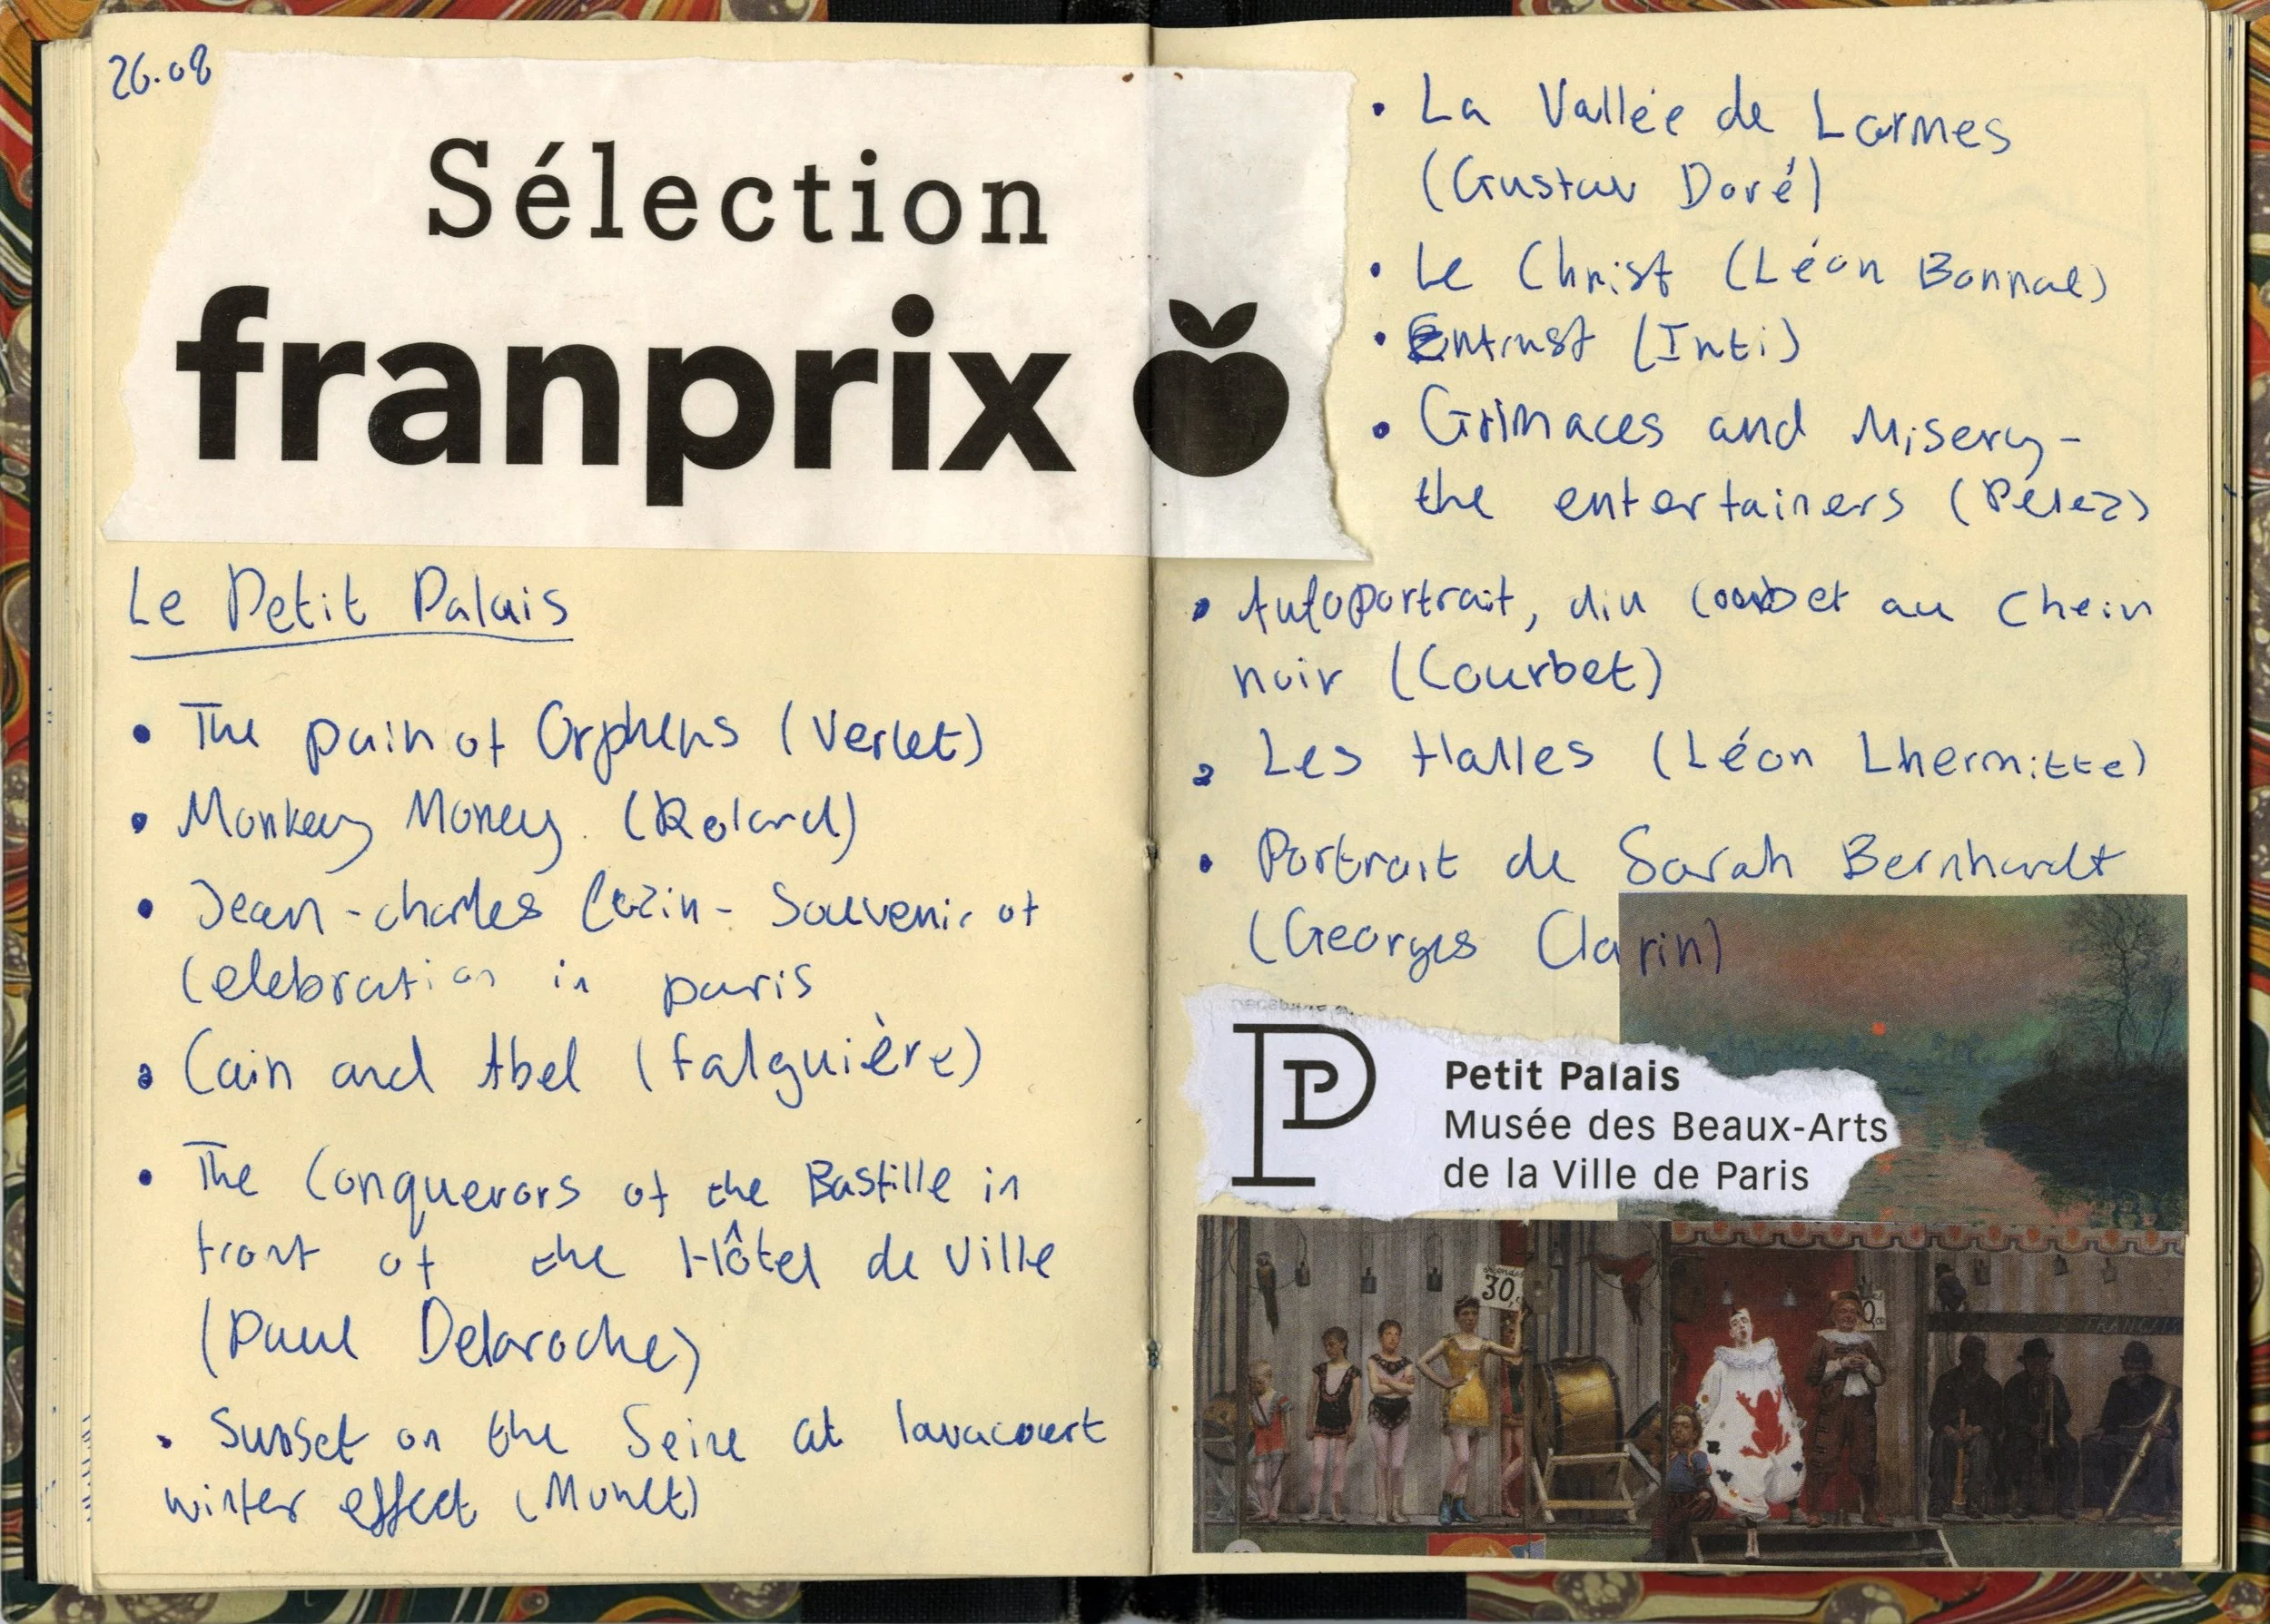 26.08
Sélection
franprix
Le Petit Palais
• The pain of Orpheus (Verlet)
• Monkey Money. (Roland)
• Jean-charles Cazin - Souvenir of
Celebration in paris
• Cain and Abel (falguière)
• The Conquerors of the Bastille in
front of the Hôtel de Ville
(Paul Delaroche)
• Sunset on the Seine at lavacourt
winter effect (Monet)
• La Vallée de Larmes
(Gustav Doré)
• Le Christ (Léon Bonnat)
• Entrust (Inti)
• Grimaces and Misery -
the entertainers (Pelez)
• Autoportrait, dit Courbet au Chein
noir (Courbet)
• Les Halles (Léon Lhermitte)
• Portrait de Sarah Bernhardt
(Georges Clarin)
Petit Palais
Musée des Beaux-Arts
de la Ville de Paris
30